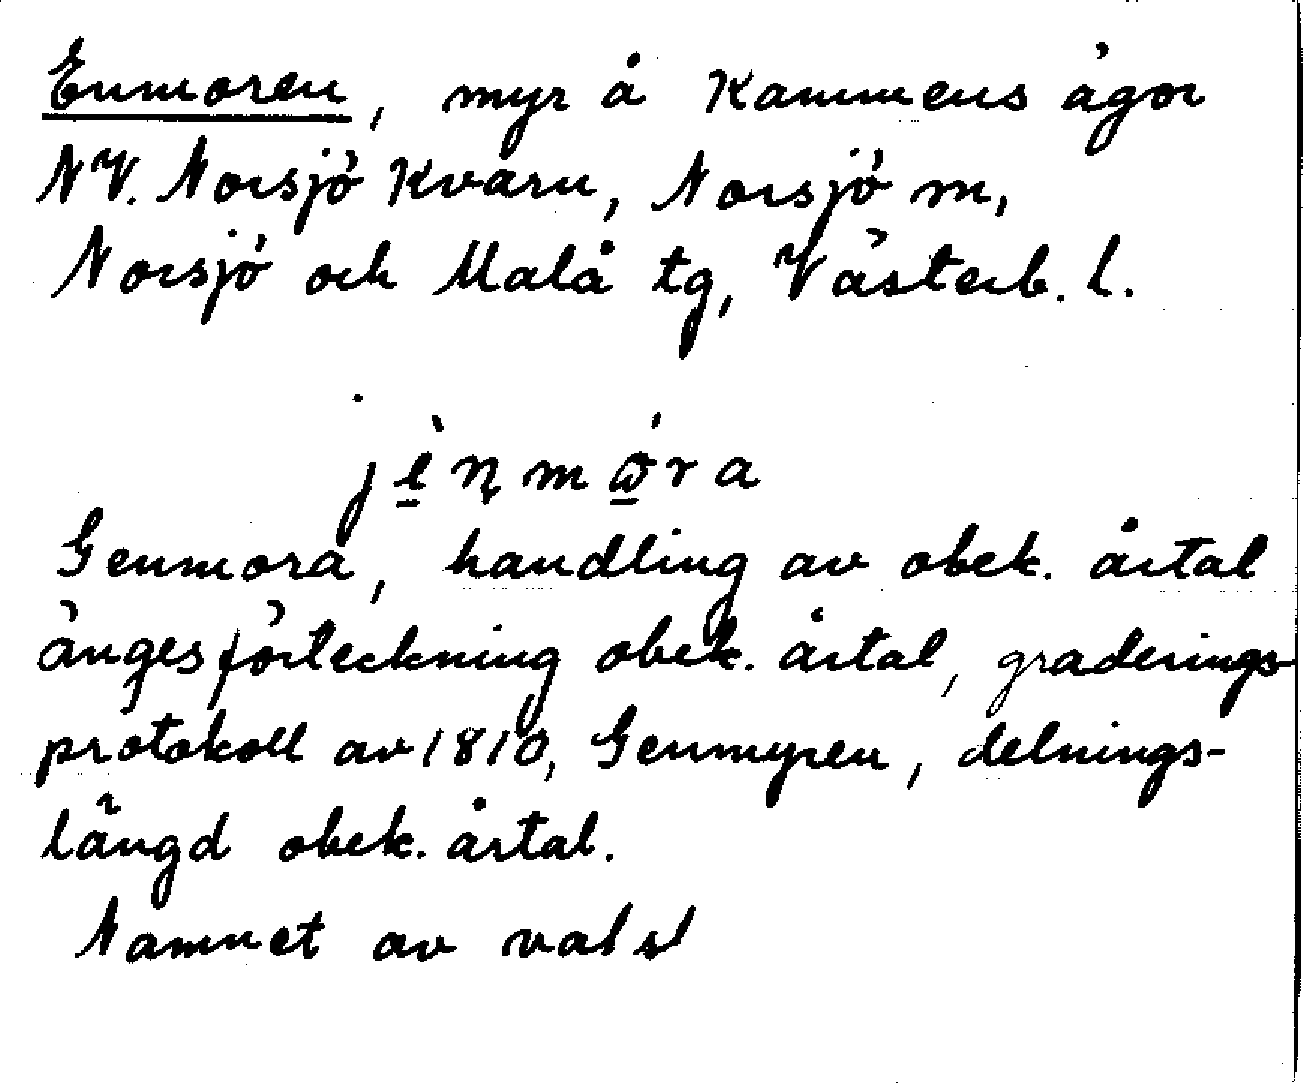 Enmoren, myr å Kammens ägor
NV. Norsjö Kvarn, Norsjö sn,
Norsjö och Malå tg, Västerb. l.
jènmóra
Genmora, handling av obek. årtal
ängesförteckning obek. årtal, graderings-
protokoll av 1810, Genmyren, delnings-
längd obek. årtal.
Namnet av